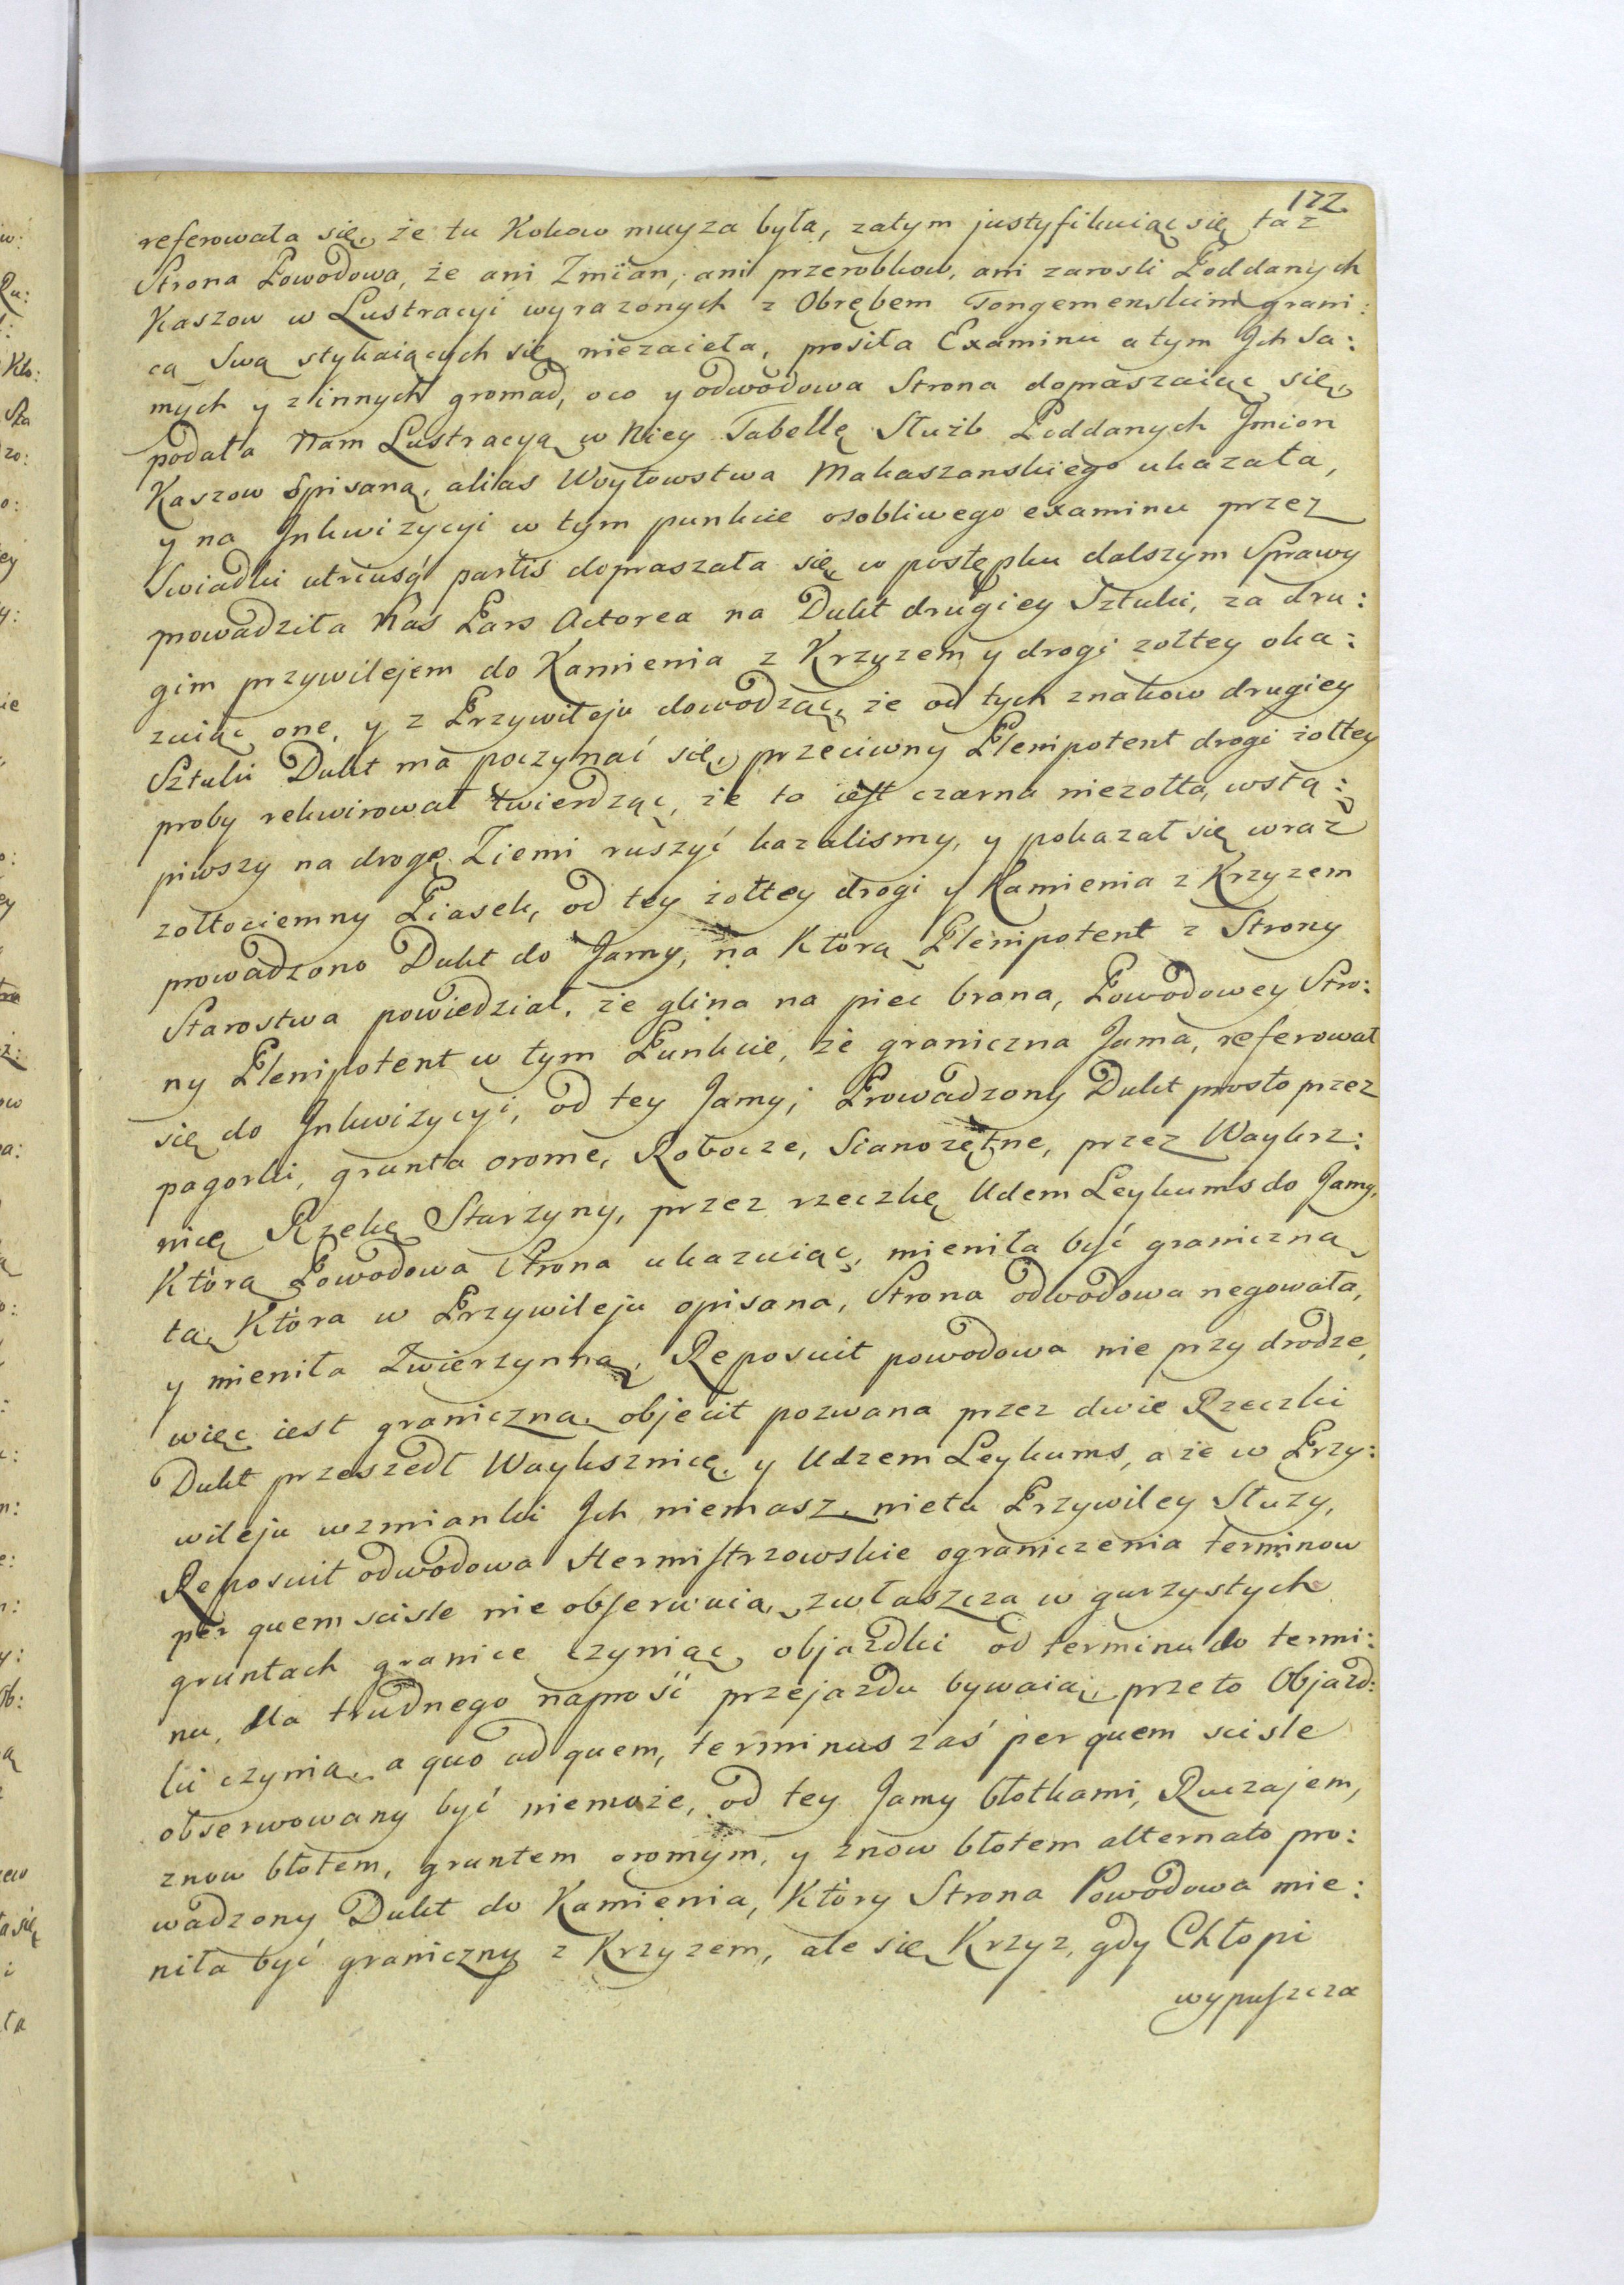 172
referowała się, że tu Kokow muyza była, zatym justyfikuiąc się taż
Strona Powodowa, że ani Zmian, ani przerobkow, ani zarosli Poddanych
Kaszow w Lustracyi wyrazonych z Obrębem Tongemenskim grani:
cą Swą stykaiących się niezaieła, prosiła Examinu a tym Jch Sa:
mych y z innych gromad, oco y odwodowa Strona dopraszaiąc się,
podała Nam Lustracyą w Niey Tabellę Służb Poddanych Jmion
Kaszow Spisaną, alias Woytowstwa Makaszanskiego ukazała,
y na Jnkwizycyi w tym punkcie osobliwego examinu przez
Swiadki utriusq partis dopraszała się w postępku dalszym Sprawy
prowadziła Nas Pars Actorea na Dukt drugiey Sztuki, za dru:
gim przywilejem do Kamienia z Krzyzem y drogi zołtey oka:
zuiąc one, y z Przywileju dowodząc, że od tych znakow drugiey
Sztuki Dukt ma poczynać się, przeciwny Plenipotent drogi żołtey
proby rekwirował twierdząc, że to iest czarna niezołta, wstą:
piwszy na drogę Ziemi ruszyć kazalismy, y pokazał się wraz
zołtociemny Piasek, od tey żołtey drogi y Kamienia z Krzyzem
prowadzono Dukt do Jamy, na Ktorą Plenipotent z Strony
Starostwa powiedział, że glina na piec brana, Powodowey Stro:
ny Plenipotent w tym Punkcie, że graniczna Jama, referował
się do Jnkwizycyi, od tey Jamy, Prowadzony Dukt prosto przez
pagorki, grunta orome, Robocze, Sianozętne, przez Waykrz:
nicę Rzekę Starzyny, przez rzeczkę Udem Leykums do Jamy,
Ktorą Powodowa Strona ukazuiąc, mieniła być graniczną
tą, Ktora w Przywileju opisana, Strona odwodowa negowała,
y mieniła Zwierzynną, Reposuit powodowa nie przy drodze,
więc iest graniczna, objecit pozwana przez dwie Rzeczki
Dukt przeszedł Wayksznicę, y Udzem Leykums, a że w Przy:
wileju wzmianki Jch niemasz, nietu Przywiley Słuzy,
Reposuit odwodowa Hermistrzowskie ograniczenia terminow
per quem scisle nie obserwuią, zwłaszcza w gurzystych
gruntach granice czyniąc, objazdki od terminu do termi:
nu, dla trudnego naprość przejazdu bywaią, przeto Objazd:
ki czynią, a quo ad quem, terminus zaś per quem scisle
obserwowany być niemoże, od tey Jamy błotkami, Ruczajem,
znow błotem, gruntem oromym, y znow błotem alternato pro:
wadzony Dukt do Kamienia, Ktory Strona Powodowa mie:
niła być graniczny z Krzyzem, ale się Krzyz, gdy Chłopi
wypuszcza